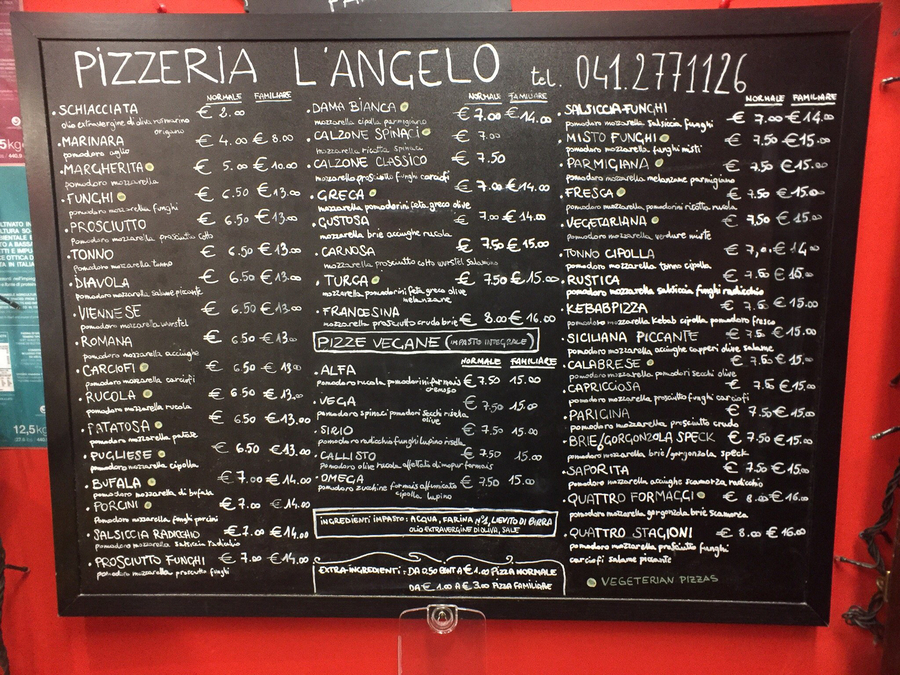 PIZZERIA L'ANGELO tel. 041.2771126
NORMALE FAMILIARE
SCHIACCIATA € 2.00
olio extravergine di oliva rosmarino
origano
MARINARA € 4.00 € 8.00
pomodoro aglio
MARGHERITA € 5.00 € 10.00
pomodoro mozzarella
FUNGHI € 6.50 € 13.00
pomodoro mozzarella funghi
PROSCIUTTO € 6.50 € 13.00
pomodoro mozzarella prosciutto cotto
TONNO € 6.50 € 13.00
pomodoro mozzarella tonno
DIAVOLA € 6.50 € 13.00
pomodoro mozzarella salame piccante
VIENNESE € 6.50 € 13.00
pomodoro mozzarella wurstel
ROMANA € 6.50 € 13.00
pomodoro mozzarella acciughe
CARCIOFI € 6.50 € 13.00
pomodoro mozzarella carciofi
RUCOLA € 6.50 € 13.00
pomodoro mozzarella rucola
PATATOSA € 6.50 € 13.00
pomodoro mozzarella patate
PUGLIESE € 6.50 € 13.00
pomodoro mozzarella cipolla
BUFALA € 7.00 € 14.00
pomodoro mozzarella di bufala
PORCINI € 7.00 € 14.00
pomodoro mozzarella funghi porcini
SALSICCIA RADICCHIO € 7.00 € 14.00
pomodoro mozzarella salsiccia radicchio
PROSCIUTTO FUNGHI € 7.00 € 14.00
pomodoro mozzarella prosciutto funghi
NORMALE FAMILIARE
DAMA BIANCA € 7.00 € 14.00
mozzarella cipolla parmigiano
CALZONE SPINACI € 7.00
mozzarella ricotta spinaci
CALZONE CLASSICO € 7.50
mozzarella prosciutto funghi carciofi
GRECA € 7.00 € 14.00
mozzarella pomodorini feta greca olive
GUSTOSA € 7.00 € 14.00
mozzarella brie acciughe rucola
CARNOSA € 7.50 € 15.00
mozzarella prosciutto cotto wurstel salamino
TURCA € 7.50 € 15.00
mozzarella pomodorini feta greca olive
melanzane
FRANCESINA € 8.00 € 16.00
mozzarella prosciutto crudo brie
PIZZE VEGANE (IMPASTO INTEGRALE)
NORMALE FAMILIARE
ALFA € 7.50 15.00
pomodoro rucola pomodorini formais
cremoso
VEGA € 7.50 15.00
pomodoro spinaci pomodori secchi risella
olive
SIRIO € 7.50 15.00
pomodoro radicchio funghi lupino risella
CALLISTO € 7.50 15.00
Pomodoro olive rucola affettato di mopur formais
OMEGA € 7.50 15.00
pomodoro zucchine formais affumicato
cipolla lupino
INGREDIENTI IMPASTO: ACQUA, FARINA N°1, LIEVITO DI BIRRA
OLIO EXTRAVERGINE DI OLIVA, SALE
EXTRA-INGREDIENTI: DA 0.50 CENT A € 1.00 PIZZA NORMALE
DA € 1.00 A € 3.00 PIZZA FAMILIARE
NORMALE FAMILIARE
SALSICCIA FUNGHI € 7.00 € 14.00
pomodoro mozzarella salsiccia funghi
MISTO FUNGHI € 7.50 € 15.00
pomodoro mozzarella funghi misti
PARMIGIANA € 7.50 € 15.00
pomodoro mozzarella melanzane parmigiano
FRESCA € 7.50 € 15.00
pomodoro mozzarella pomodorini ricotta rucola
VEGETARIANA € 7.50 € 15.00
pomodoro mozzarella verdure miste
TONNO CIPOLLA € 14
pomodoro mozzarella tonno cipolla
RUSTICA € 7.50 € 15.00
pomodoro mozzarella salsiccia funghi radicchio
KEBABPIZZA € 7.5 € 15.00
pomodoro mozzarella kebab cipolla pomodoro fresco
SICILIANA PICCANTE € 7.5 € 15.00
pomodoro mozzarella acciughe capperi olive salame
CALABRESE € 7.50 € 15.00
pomodoro mozzarella pomodori secchi olive
CAPRICCIOSA € 7.5 € 15.00
pomodoro mozzarella prosciutto funghi carciofi
PARIGINA € 7.50 € 15.00
pomodoro mozzarella prosciutto crudo
BRIE/GORGONZOLA SPECK € 7.50 € 15.00
pomodoro mozzarella brie/gorgonzola speck
SAPORITA € 7.50 € 15.00
pomodoro mozzarella acciughe scamorza radicchio
QUATTRO FORMAGGI € 8.00 € 16.00
pomodoro mozzarella gorgonzola brie scamorza
QUATTRO STAGIONI € 8.00 € 16.00
pomodoro mozzarella prosciutto funghi
carciofi salame piccante
VEGETERIAN PIZZAS
12,5kg